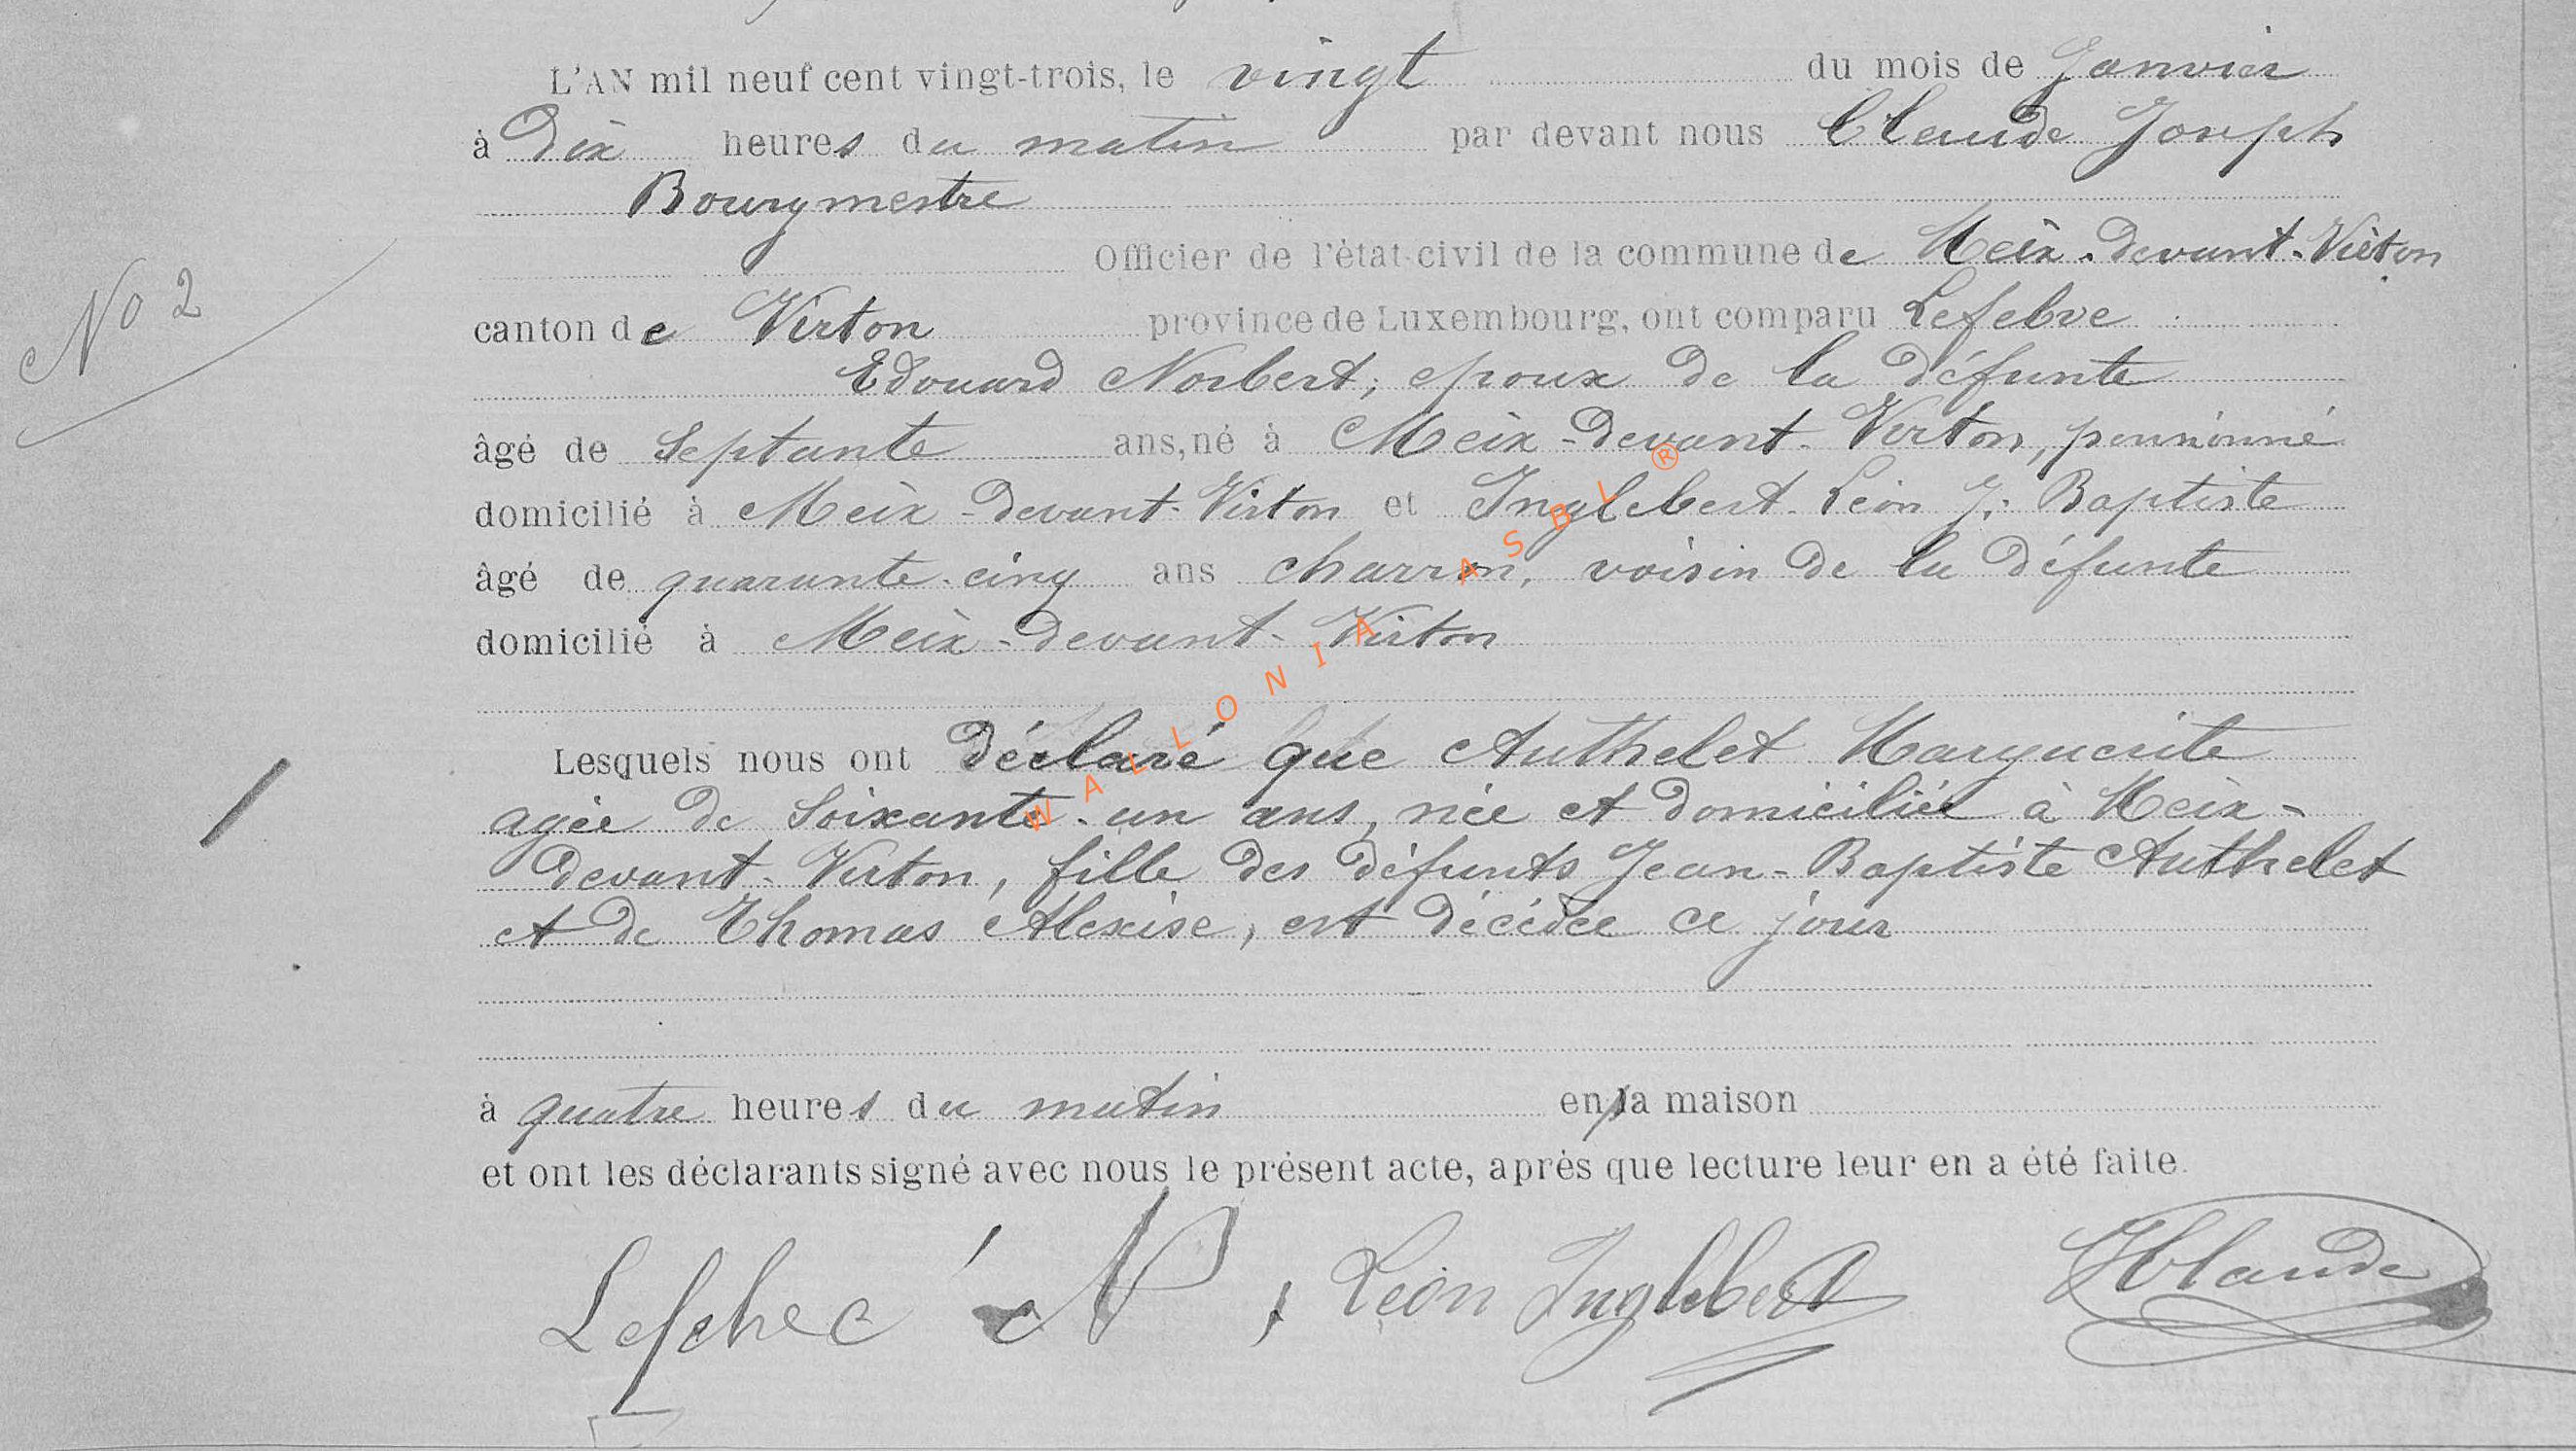 L'AN mil neuf cent vingt-trois, le vingt du mois de Janvier
à Dix heures du matin par devant nous Claude Joseph
Bourgmestre
Officier de l'état civil de la commune de Meix-devant-Virton
No 2
canton de Virton province de Luxembourg, ont comparu Lefebve
Edouard Norbert, epoux de la défunte
âgé de Septante ans, né à Meix-devant-Virton, pensionné
domicilié à Meix-devant-Virton et Inglebert Léon J. Baptiste
âgé de quarante-cinq ans charron, voisin de la défunte
domicilié à Meix-devant-Virton
Lesquels nous ont déclaré que Authelet Marguerite
agée de Soixante-un ans, née et domiciliée à Meix-
devant-Virton, fille des défunts Jean-Baptiste Authelet
et de Thomas Alexise, est décédée ce jour
à quatre heures du matin en sa maison
et ont les déclarants signé avec nous le présent acte, après que lecture leur en a été faite.
N, Léon Inglebert JClaude
WALLONIA ASBL ®